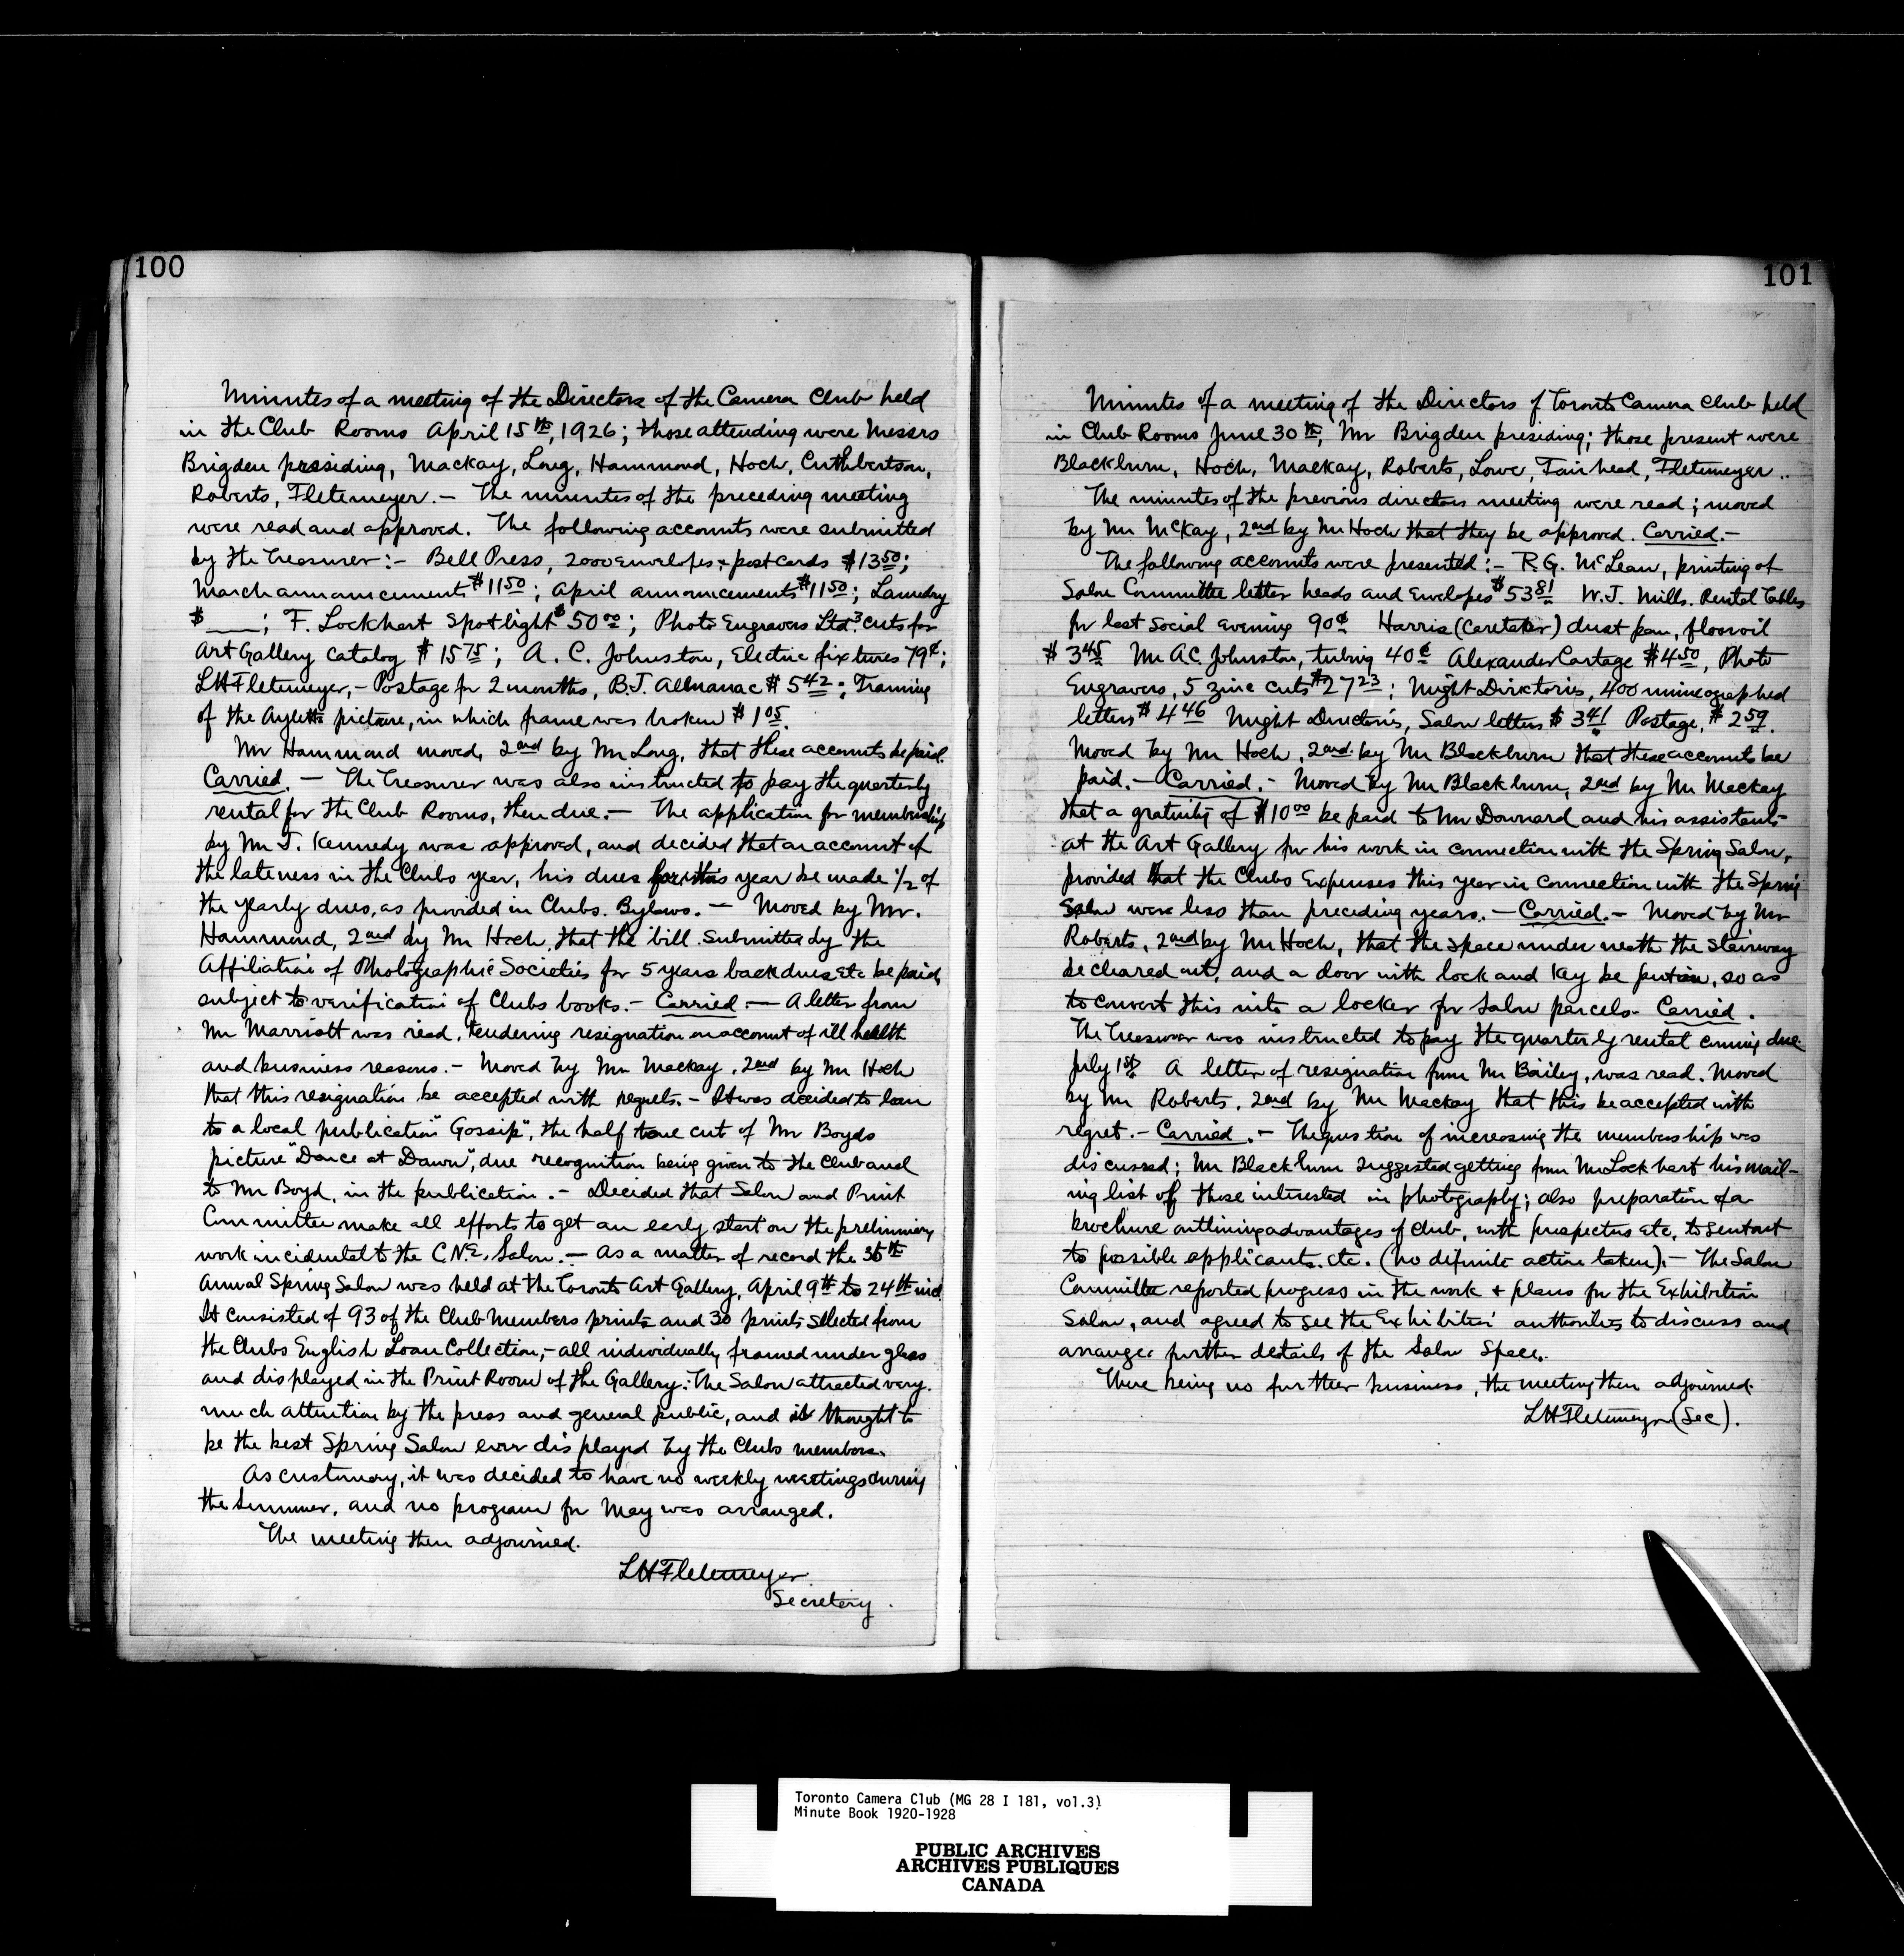 100
Minutes of a meeting of the Directors of the Camera Club held
in the Club Rooms April 15th, 1926; those attending were Messrs
Brigden presiding, Mackay, Long, Hammond, Hoch, Cuthbertson,
Roberts, Fletemeyer. — The minutes of the preceding meeting
were read and approved. The following accounts were submitted
by the Treasurer:- Bell Press, 2000 envelopes & post cards $13.50;
March announcements $11.50; April announcements $11.50; Laundry
$ ___; F. Lockhart Spotlight $50.00; Photo Engravers Ltd. 3 cuts for
Art Gallery Catalog $15.75; A. C. Johnston, Electric fixtures 79¢;
LHFletemeyer,- Postage for 2 months, B.J. Allmanac $5.42; Framing
of the Ayletts picture, in which frame was broken $1.05.
Mr Hammond moved, 2nd by Mr Long, that these accounts be paid.
Carried. — The Treasurer was also instructed to pay the quarterly
rental for the Club Rooms, then due. — The application for membership
by Mr J. Kennedy was approved, and decided that on account of
the lateness in the Clubs year, his dues for this year be made 1/2 of
the yearly dues, as provided in Clubs. Bylaws. — Moved by Mr.
Hammond, 2nd by Mr Hoch, that the bill submitted by the
Affiliation of Photographic Societies for 5 years back dues etc be paid,
subject to verification of Clubs books. - Carried — A letter from
Mr Marriott was read, tendering resignation on account of ill health
and business reasons. - Moved by Mr Mackay, 2nd by Mr Hoch
that this resignation be accepted with regrets. - It was decided to loan
to a local publication "Gossip", the half tone cut of Mr Boyds
picture "Dance at Dawn", due recognition being given to the Club and
to Mr Boyd, in the publication. - Decided that Salon and Print
Committee make all efforts to get an early start on the preliminary
work incidental to the C.N.E. Salon. — As a matter of record the 35th
Annual Spring Salon was held at the Toronto Art Gallery, April 9th to 24th incl.
It consisted of 93 of the Club Members prints and 30 prints selected from
the Clubs English Loan Collection,- all individually framed under glass
and displayed in the Print Room of the Gallery. The Salon attracted very
much attention by the press and general public, and is thought to
be the best Spring Salon ever displayed by the Clubs members.
As customary, it was decided to have no weekly meetings during
the Summer, and no program for May was arranged.
The meeting then adjourned.
LHFletemeyer
Secretary.
101
Minutes of a meeting of the Directors of Toronto Camera Club held
in Club Rooms June 30th, Mr Brigden presiding; those present were
Blackburn, Hoch, Mackay, Roberts, Lowe, Fairhead, Fletemeyer.
The minutes of the previous directors meeting were read; moved
by Mr McKay, 2nd by Mr Hoch that they be approved. Carried.-
The following accounts were presented:- R.G. McLean, printing of
Salon Committee letter heads and Envelopes $53.81 W.J. Mills. Rental Tables
for last Social Evening 90¢ Harris (Caretaker) dust pan, flooroil
$3.45 Mr A.C. Johnston, tubing 40¢ Alexander Cartage $4.50, Photo
Engravers, 5 zinc cuts $27.23; Might Directories, 400 mimeographed
letters $4.46 Might Directories, Salon letters $3.41 Postage, $2.59.
Moved by Mr Hoch, 2nd. by Mr Blackburn that these accounts be
paid. - Carried. - Moved by Mr Blackburn, 2nd by Mr Mackay
that a gratuity of $10.00 be paid to Mr Downard and his assistants
at the Art Gallery for his work in connection with the Spring Salon,
provided that the Clubs Expenses this year in connection with the Spring
Salon were less than preceding years. - Carried. - Moved by Mr
Roberts, 2nd by Mr Hoch, that the space underneath the stairway
be cleared out, and a door with lock and key be put in, so as
to convert this into a locker for Salon parcels - Carried.
The Treasurer was instructed to pay the quarterly rental coming due
July 1st. A letter of resignation from Mr Bailey, was read. Moved
by Mr Roberts, 2nd by Mr Mackay that this be accepted with
regret. - Carried. - The question of increasing the membership was
discussed; Mr Blackburn suggested getting from Mr Lockhart his mail-
ing list of those interested in photography; also preparation of a
brochure outlining advantages of Club, with prospectus etc, to sent out
to possible applicants. etc. (no definite action taken). - The Salon
Committee reported progress in the work + plans for the Exhibition
Salon, and agreed to see the Exhibition authorities to discuss and
arrange further details of the Salon Space.
There being no further business, the meeting then adjourned.
LHFletemeyer (Sec).
Toronto Camera Club (MG 28 I 181, vol.3)
Minute Book 1920-1928
PUBLIC ARCHIVES
ARCHIVES PUBLIQUES
CANADA